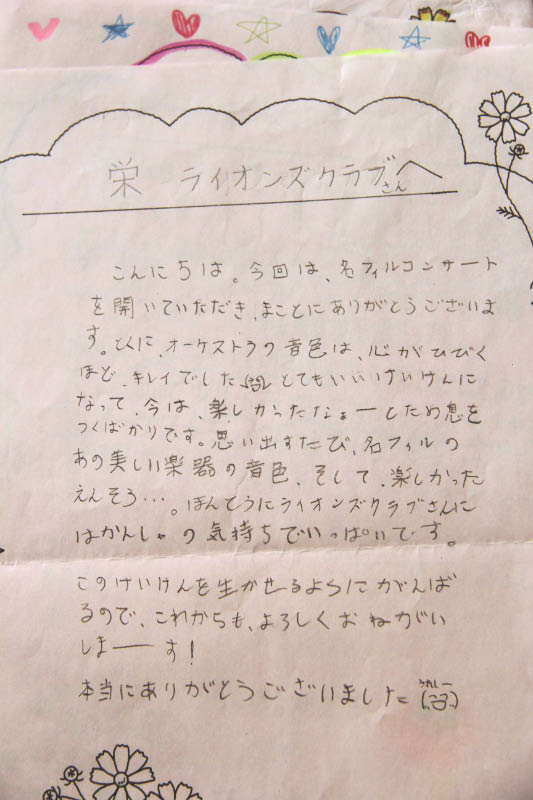 栄 ライオンズクラブさんへ
こんにちは。今回は、名フィルコンサート
を開いていただき、まことにありがとうございま
す。とくに、オーケストラの音色は、心がひびく
ほど、キレイでした とてもいいけいけんに
なって、今は、楽しかったなぁーとため息を
つくばかりです。思い出すたび、名フィルの
あの美しい楽器の音色、そして、楽しかった
えんそう…。ほんとうにライオンズクラブさんに
はかんしゃの気持ちでいっぱいです。
このけいけんを生かせるようにがんば
るので、これからも、よろしくおねがい
しまーーす!
本当にありがとうございました